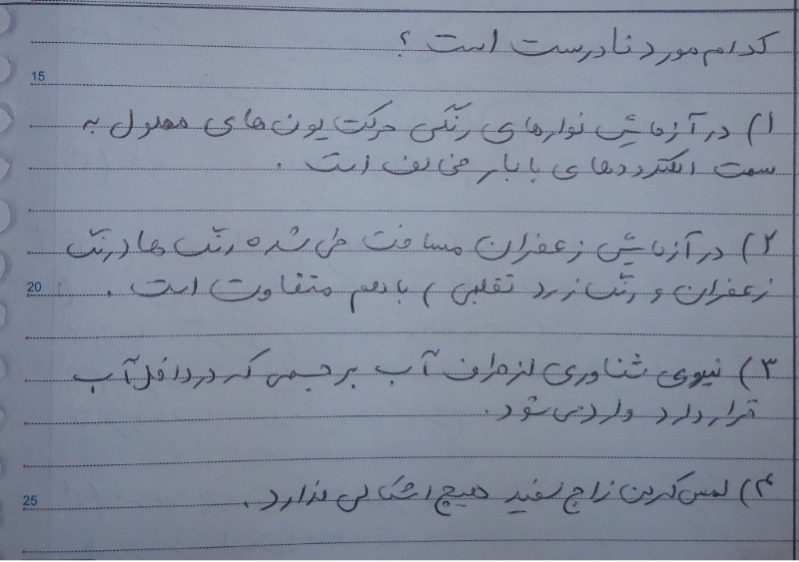 کدام مورد نادرست است ؟
15
۱) در آزمایش نوارهای رنگی حرکت یون های محلول به
سمت الکترودهای با بار مخالف است .
۲) در آزمایش زعفران مسافت طی شده رنگ ها (رنگ
زعفران و رنگ زرد تقلبی ) با هم متفاوت است .
20
۳) نیروی شناوری از طرف آب بر جسمی که در داخل آب
قرار دارد وارد می شود .
۴) لمس کردن زاج سفید هیچ اشکالی ندارد .
25